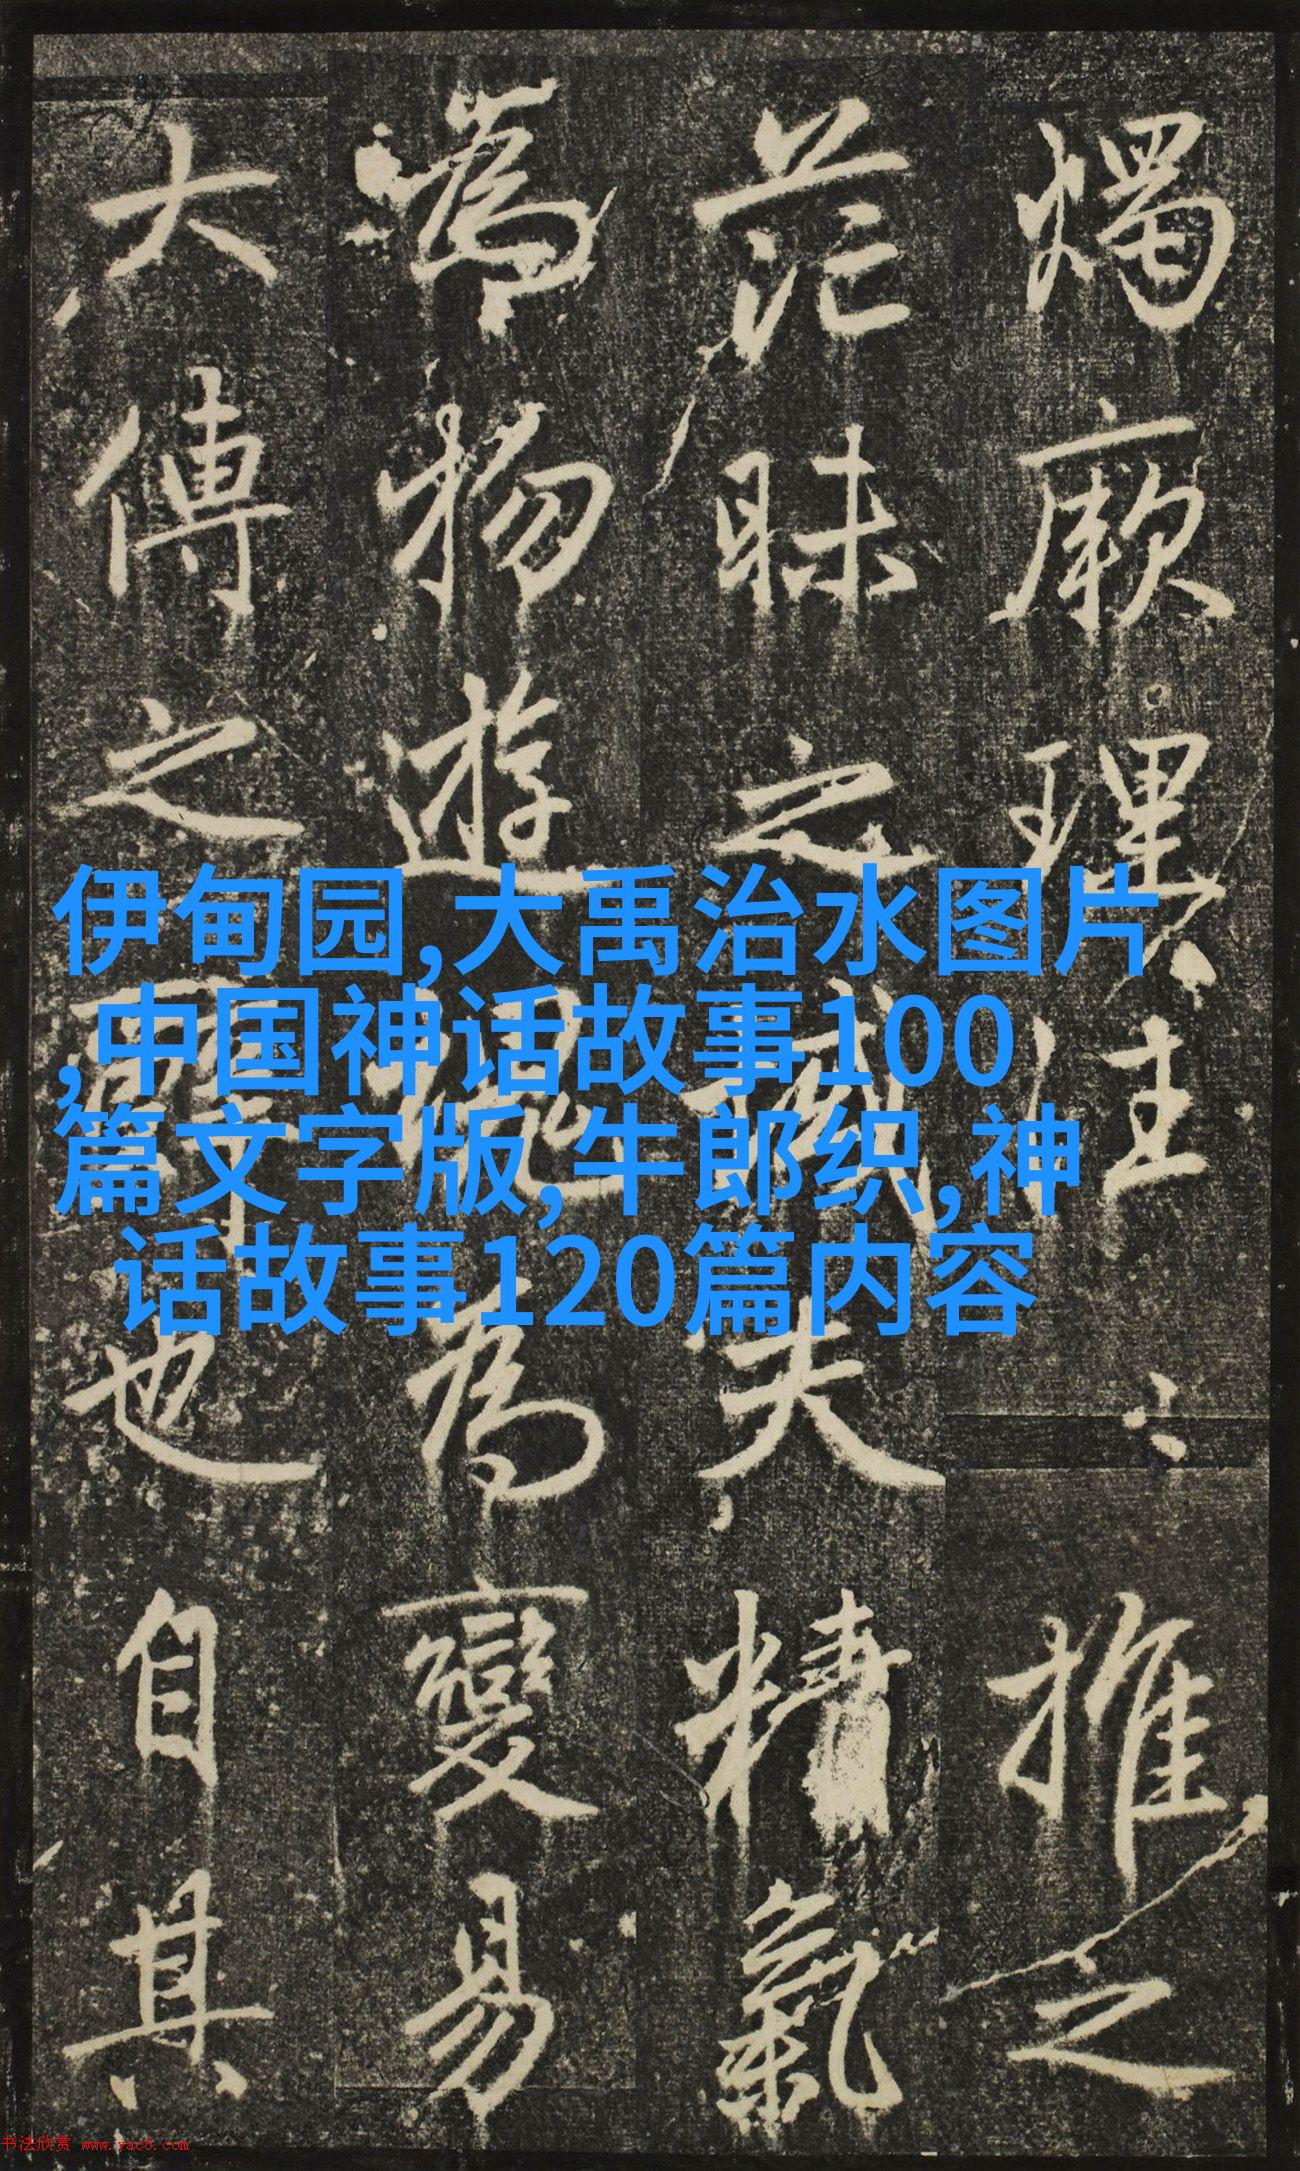 燭厥理推之
茫昧之域夫精氣
為物遊魂為變易
大傳之也自其
伊甸园,大禹治水图片
,中国神话故事100
篇文字版,牛郎织,神
话故事120篇内容
书法欣赏 www.yac8.com